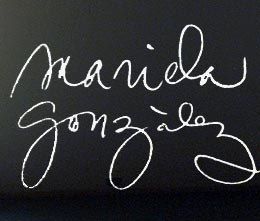 Mariela
Gonzàlez